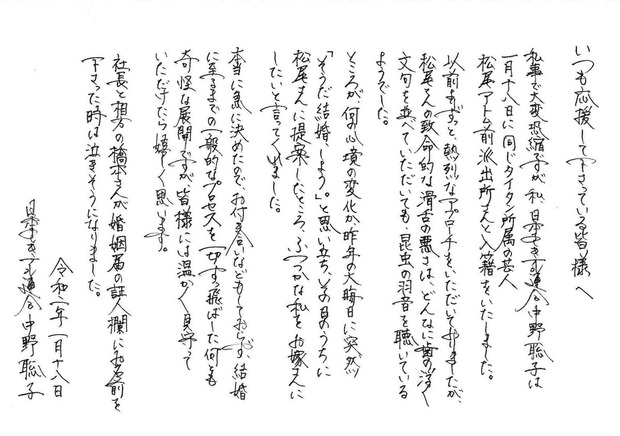 いつも応援して下さっている皆様へ
私事で大変恐縮ですが、私、日本エレキテル連合中野聡子は
一月十八日に同じタイタン所属の芸人
松尾アトム前派出所さんと入籍をいたしました。
以前よりずっと、熱烈なアプローチをいただいておりましたが、
松尾さんの致命的な滑舌の悪さは、どんなに歯の浮く
文句を並べていただいても、昆虫の羽音を聴いている
ようでした。
ところが、何の心境の変化か昨年の大晦日に突然ッ
「そうだ結婚、しよう。」と思い立ち、その日のうちに
松尾さんに提案したところ、ふつつかな私をお嫁さんに
したいと言ってくれました。
本当に急に決めたので、お付き合いなどもしておらず、結婚
に至るまでの一般的なプロセスを一切すっ飛ばした何とも
奇怪な展開ですが、皆様には温かく見守って
いただけたら嬉しく思います。
社長と相方の橋本さんが婚姻届の証人欄にお名前を
下さった時は泣きそうになりました。
令和二年一月十八日
日本エレキテル連合 中野聡子